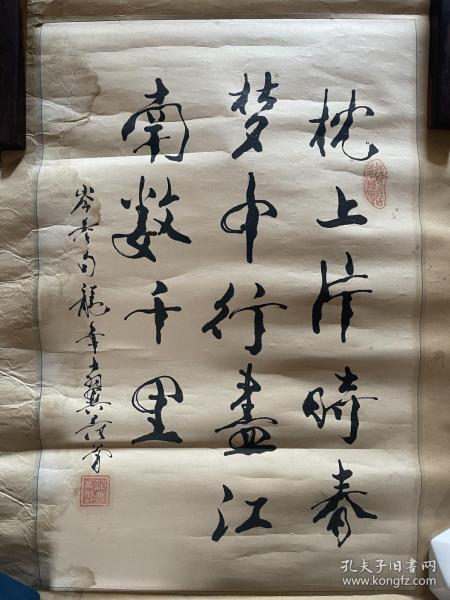 枕上片時春
夢中行盡江
南数千里
岑參句 龍年
孔夫子旧书网
www.kongfz.com